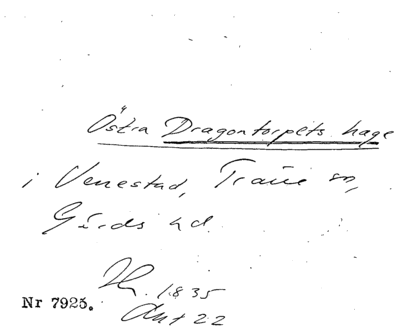 Östra Dragontorpets hage
i Venestad, Träne sn,
Gärds hd
1835
Akt 22
Nr 7925.